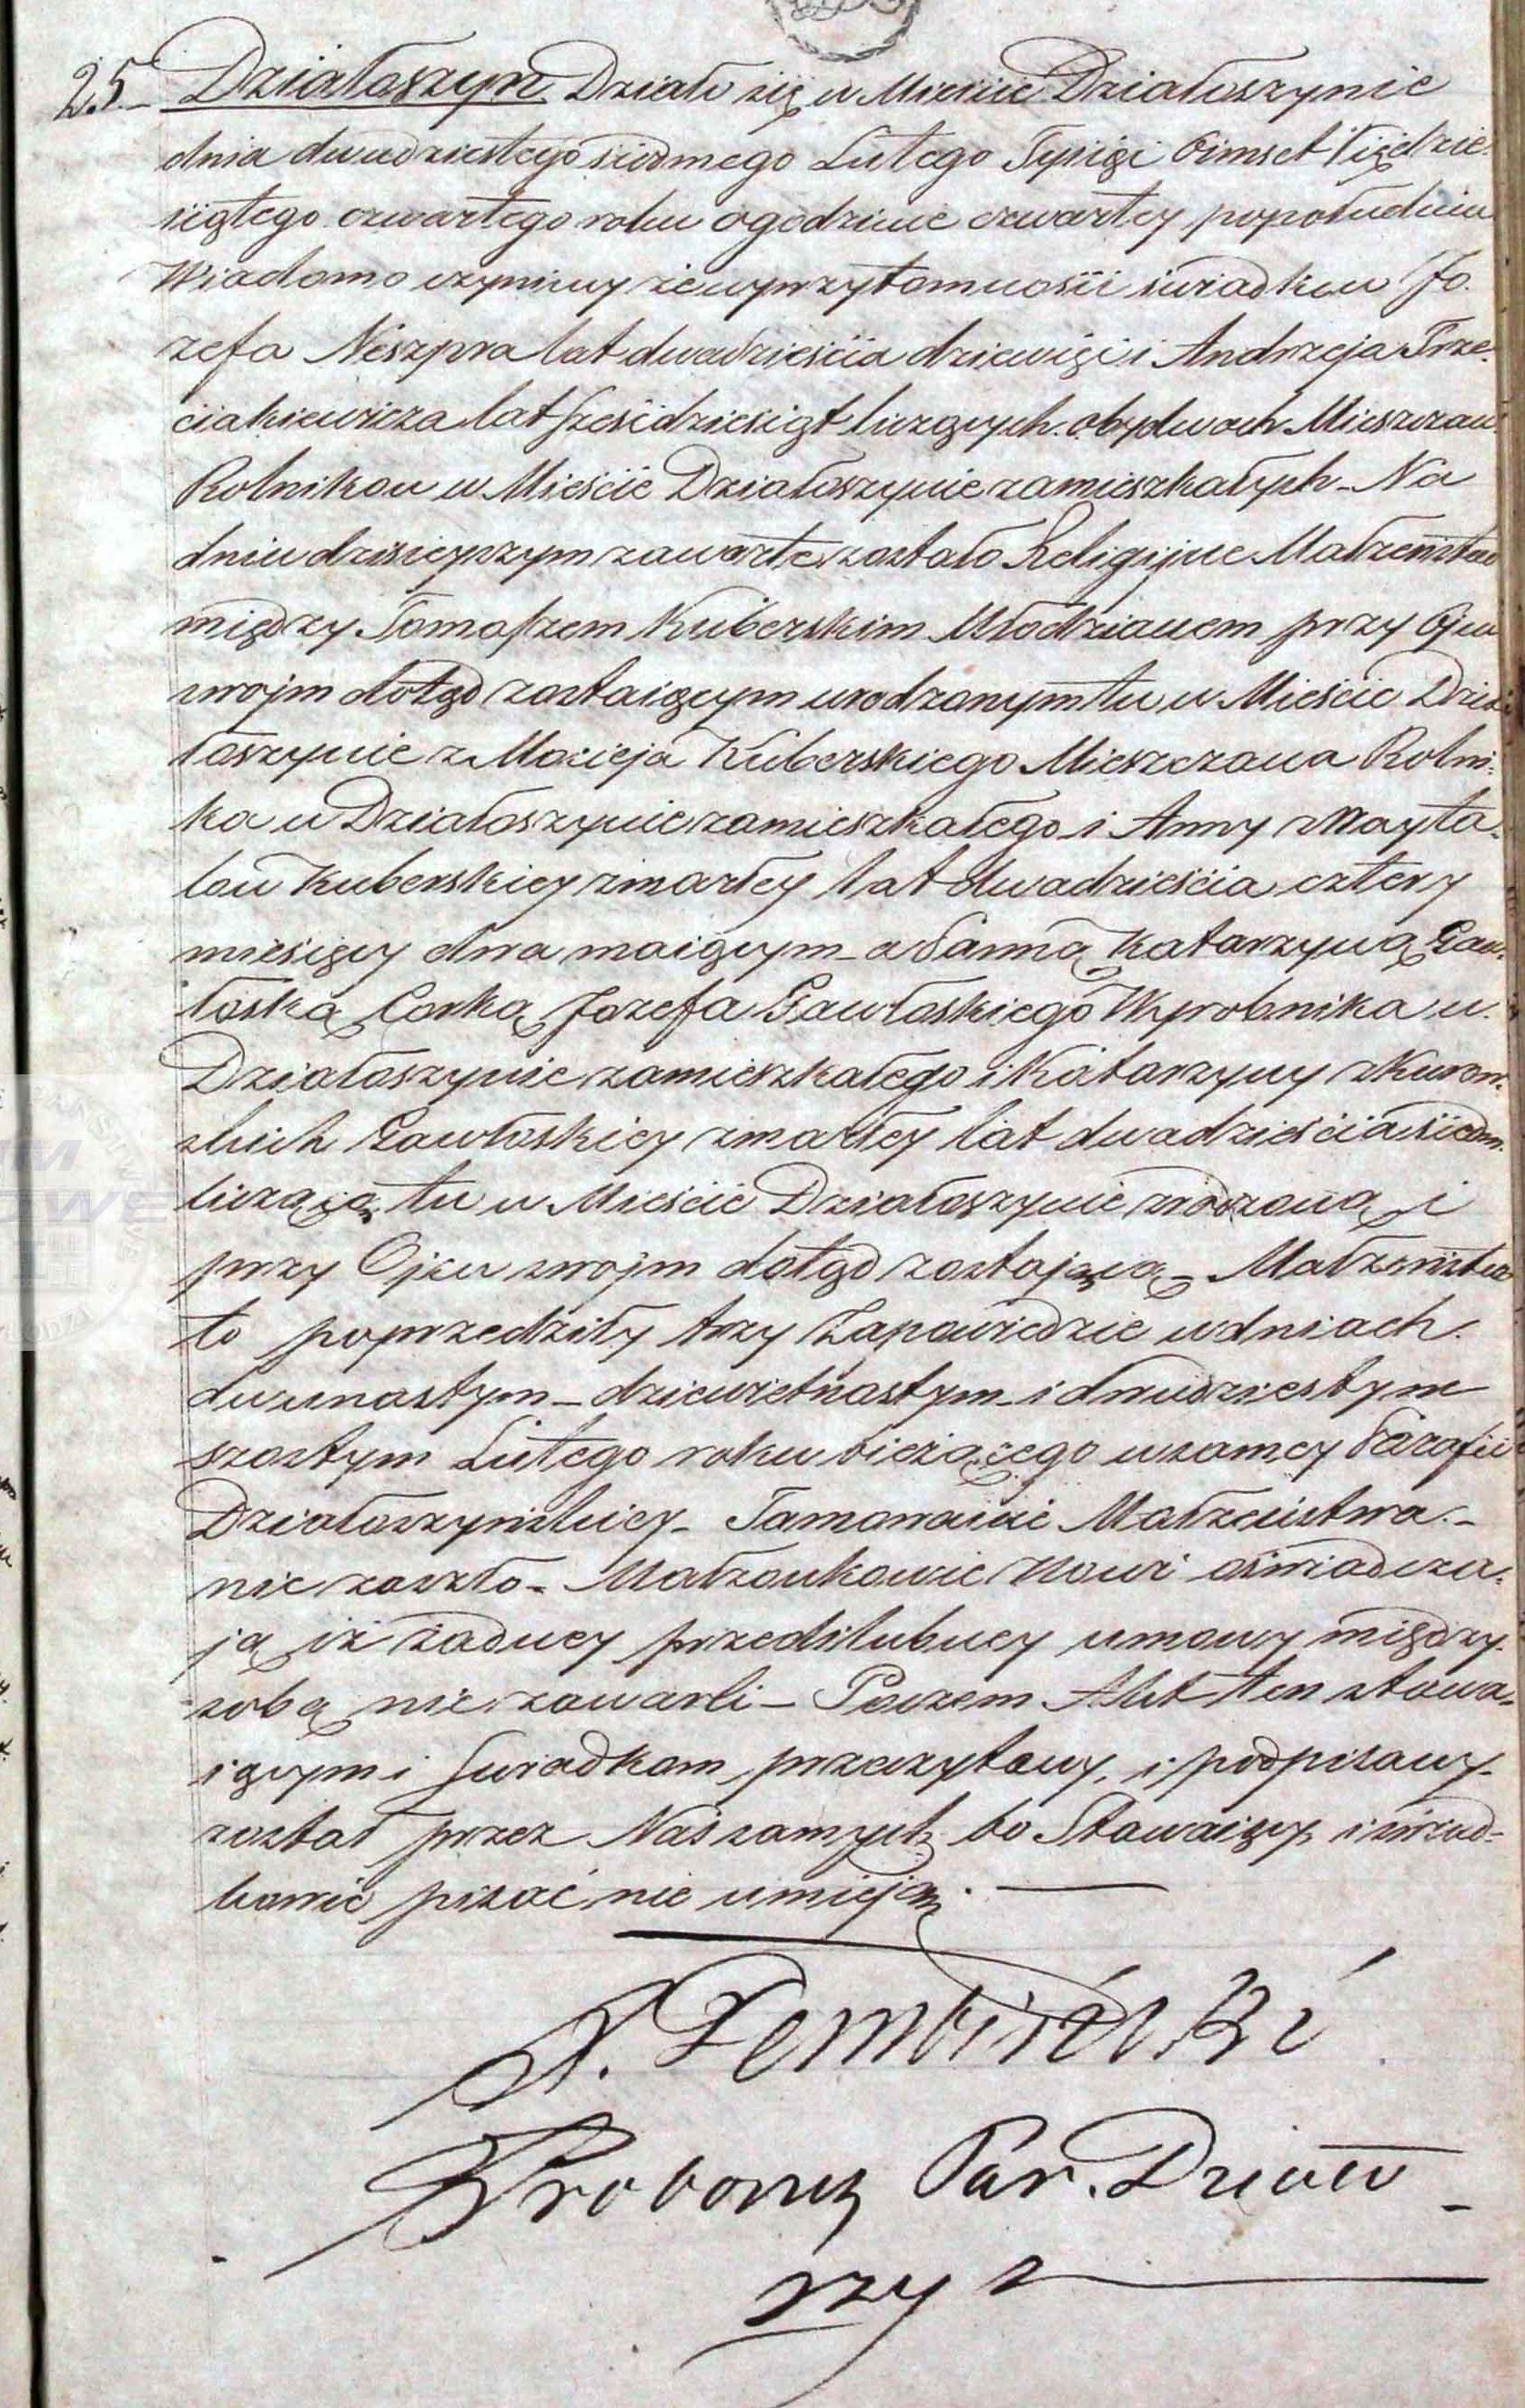 25. Działoszyn Działo się w Mieście Działoszynie
dnia dwudziestego siódmego Lutego Tysiąc Ośmset Piędzie-
siątego czwartego roku o godzinie czwartey popołudniu
Wiadomo czyniemy że w przytomności świadków Jó-
zefa Neszpra lat dwadzieścia dziewięć i Andrzeja Trze-
ciakiewicza lat sześćdziesiąt liczących obydwóch Mieszczan
Rolników w Mieście Działoszynie zamieszkałych – Na
dniu dzisieyszym zawarte zostało Religijne Małżeństwo
między Tomaszem Kuberskim Młodzianem przy Ojcu
swojm dotąd zostaiącym urodzonym tu w Mieście Dzia-
łoszynie z Macieja Kuberskiego Mieszczana Rolni-
ka w Działoszynie zamieszkałego i Anny z Mayta-
low Kuberskiey zmarłey lat dwadzieścia cztery
miesięcy dwa maiącym – a Panną Katarzyną Gaw-
łoską Corką Jozefa Gawłoskiego Wyrobnika w
Działoszynie zamieszkałego i Katarzyny z Kurow-
skich Gawłoskiey zmarłey lat dwadzieścia siedm
liczącą tu w Mieście Działoszynie zrodzoną i
przy Ojcu swojm dotąd zostającą – Małżeństwo
to poprzedziły trzy Zapowiedzie w dniach
dwunastym – dziewietnastym – i dwudziestym
szostym Lutego roku bieżącego w samey Parafii
Działoszyńskiey – Tamowanie Małżeństwa –
nie zaszło – Małżonkowie Nowi oświadcza-
ją iż żadney przedślubney umowy między
sobą nie zawarli – Poczem Akt ten stawa-
iącym i świadkom przeczytany, i podpisany
został przez Nas samych bo Stawaiący i świad-
kowie pisać nie umieją. —
Proboszcz Par. Działo-
szyn